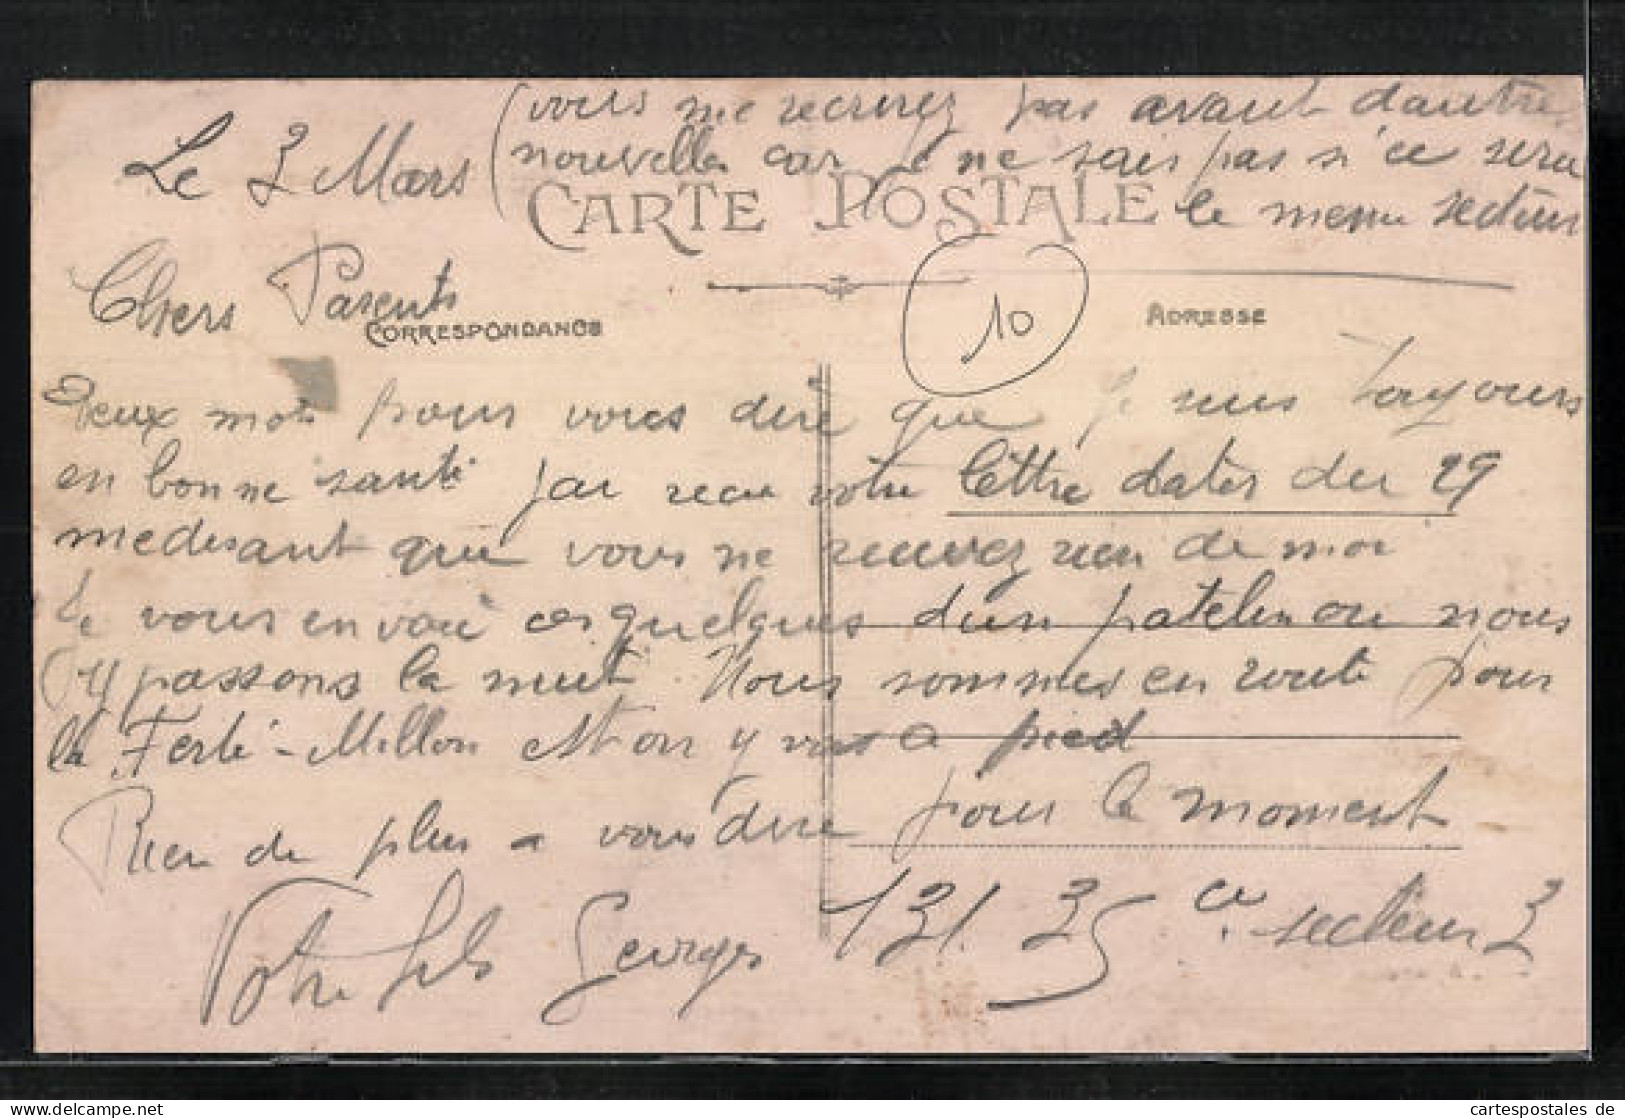 Le 3 Mars
(vous me recrirez pas avant dautre
nouvelles car je ne sais pas si ce sera
le meme secteur
CARTE POSTALE
Chers Parents
CORRESPONDANCE
10
ADRESSE
Deux mots pour vous dire que je suis toujours
en bonne santé jai recu votre lettre dates du 29
me disant que vous ne recevez rien de moi
Je vous envoie ces quelques dun patelin ou nous
y passons la nuit. Nous sommes en route pour
la Ferté-Millon et on y vas a pied
Rien de plus a vous dire pour le moment
Votre fils Georges 131. 35 Cie. secteur 3
www.cartespostales.de